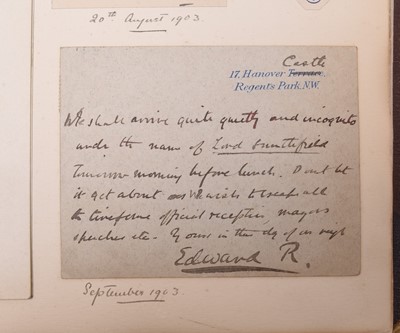 20th August 1903.
Castle
17, Hanover Terrace.
Regents Park. N.W.
We shall arrive quite quietly and incognito
under the name of Lord
tomorrow morning before lunch. Dont let
it get about as We wish to escape all
the tiresome official reception mayors
speeches etc. Yours in the
Edward R.
September 1903.